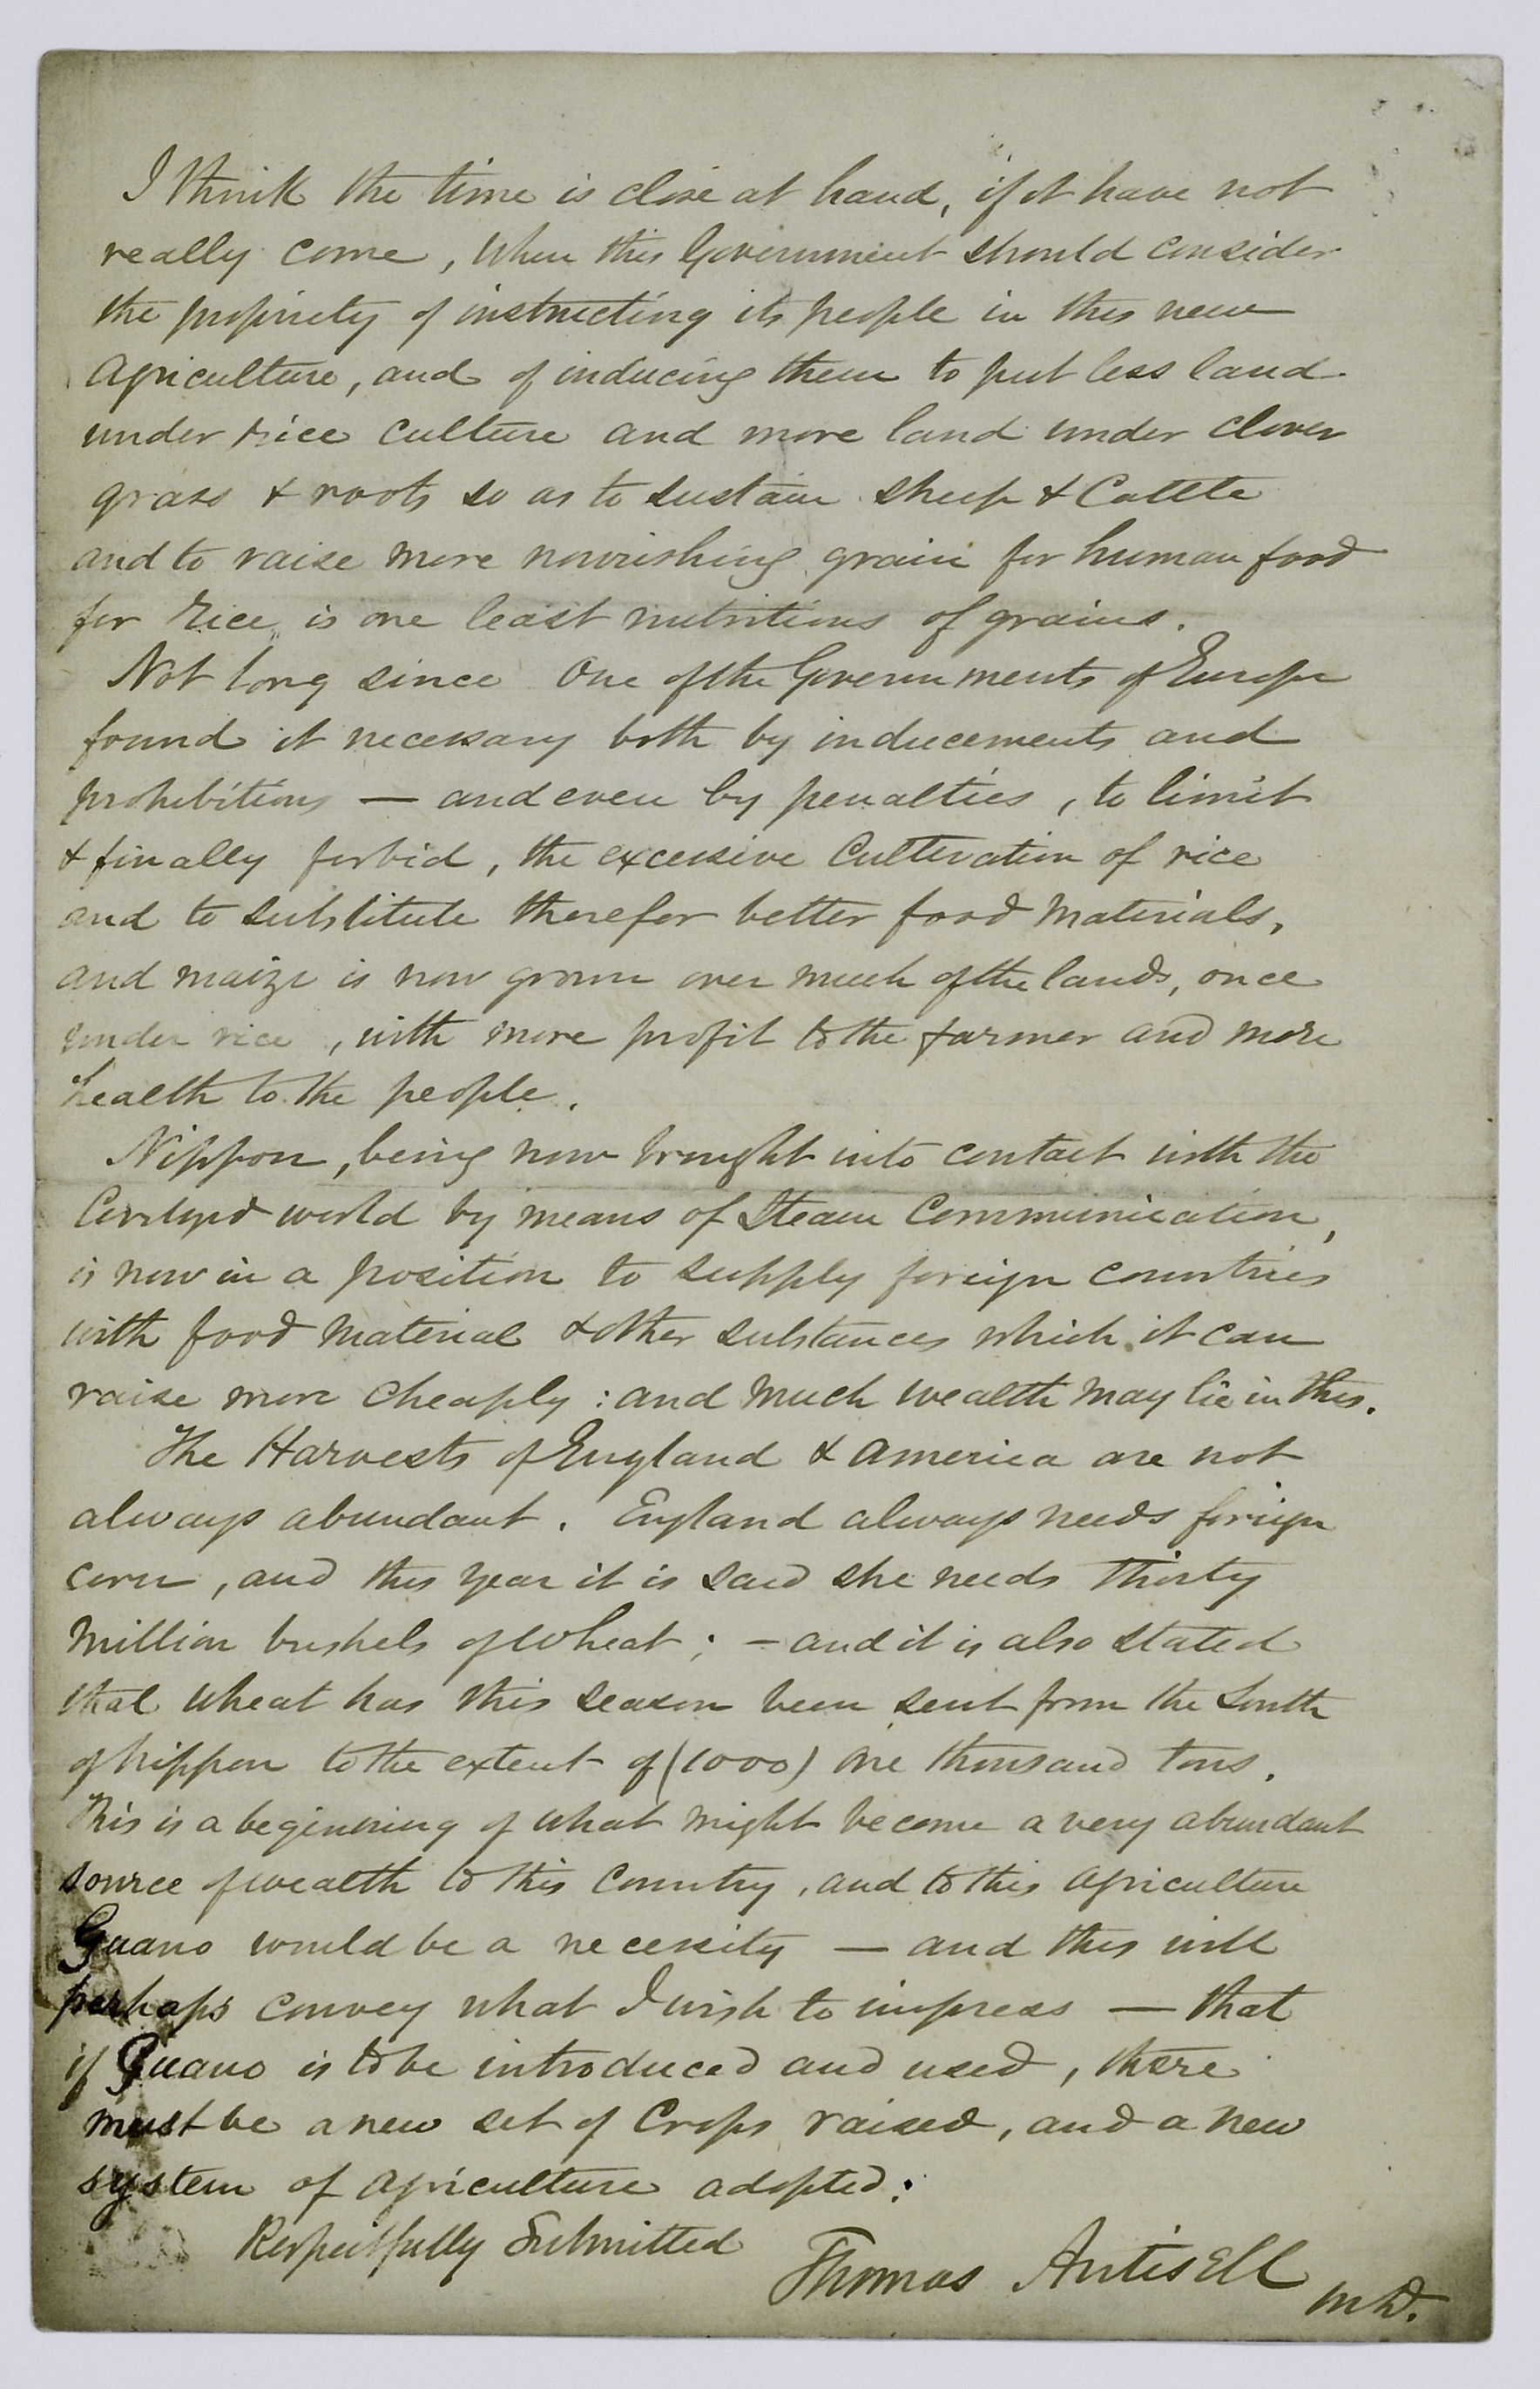 I think the time is close at hand, if it have not
really come, when this Government should consider
the propriety of instructing its people in this new
Agriculture, and of inducing them to put less land
under rice culture and more land under clover
grass & roots so as to sustain sheep & Cattle
and to raise more nourishing grain for human food
for rice is one least nutritious of grains.
Not long since One of the Governments of Europe
found it necessary both by inducements and
prohibitions — and even by penalties, to limit
& finally forbid, the excessive Cultivation of rice
and to substitute therefor better food materials,
and maize is now grown over much of the lands, once
under rice, with more profit to the farmer and more
health to the people.
Nippon, being now brought into contact with the
Civilized world by means of Steam Communication,
is now in a position to supply foreign countries
with food material & other substances which it can
raise more cheaply: and much wealth may lie in this.
The Harvests of England & America are not
always abundant. England always needs foreign
corn, and this year it is said she needs thirty
million bushels of wheat; — and it is also stated
that wheat has this season been sent from the South
of Nippon to the extent of (1000) one thousand tons.
This is a beginning of what might become a very abundant
source of wealth to this country, and to this agriculture
Guano would be a necessity — and this will
perhaps convey what I wish to impress — that
if Guano is to be introduced and used, there
must be a new set of Crops raised, and a new
system of agriculture adopted:
Respectfully Submitted
Thomas Antisell
M.D.